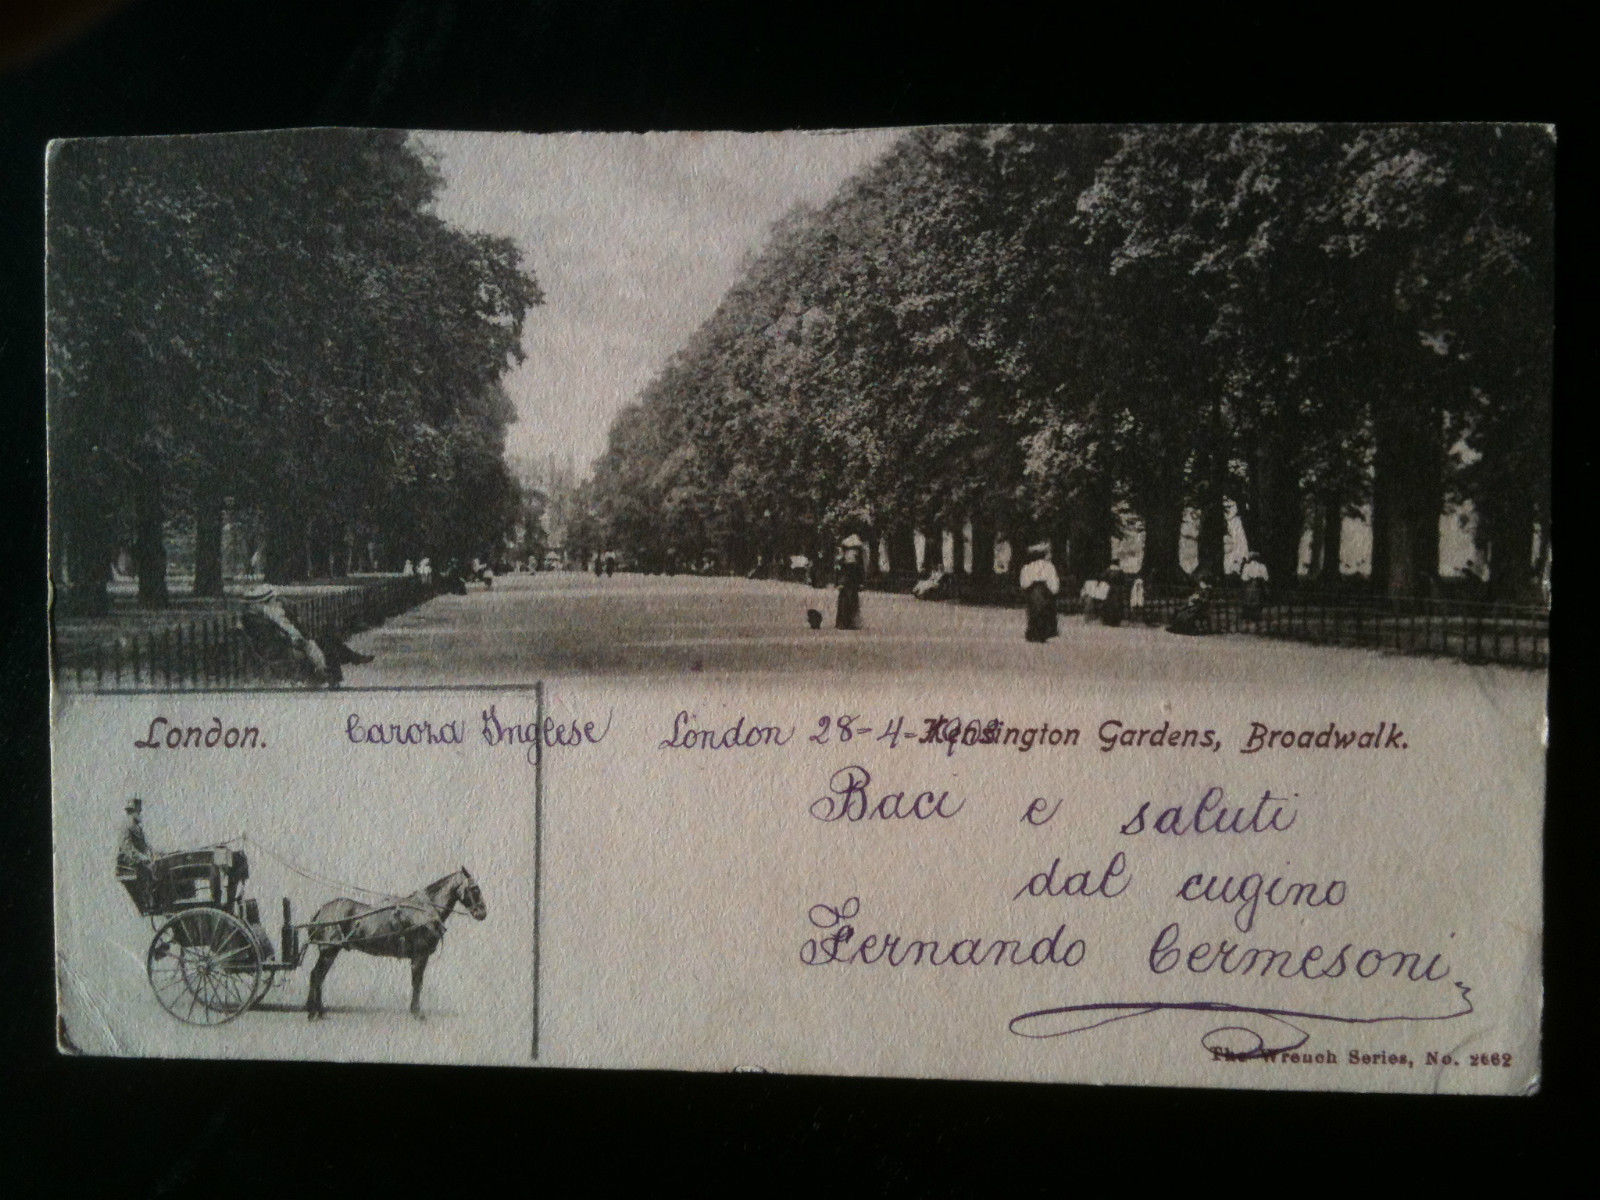 London. Caroza Inglese London 28-4-1908 Kensington Gardens, Broadwalk.
Baci e saluti
dal cugino
Fernando Cermesoni
The Wrench Series, No. 2662